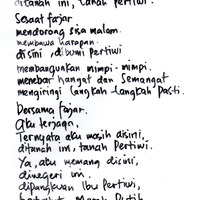 ditanah ini, tanah pertiwi.
Sesaat fajar
mendorong sisa malam.
membawa harapan.
disini, dibumi pertiwi
membangunkan mimpi-mimpi.
menebar hangat dan semangat
mengiringi langkah-langkah pasti.
bersama fajar.
Aku terjaga,
Ternyata aku masih disini,
ditanah ini, tanah Pertiwi.
Ya, aku memang disini,
dinegeri ini.
dipangkuan Ibu Pertiwi,
Merah Putih